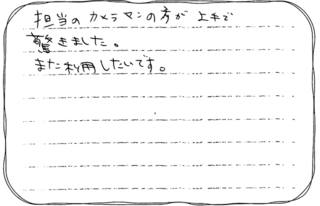 担当のカメラマンの方が上手で
驚きました。
また利用したいです。